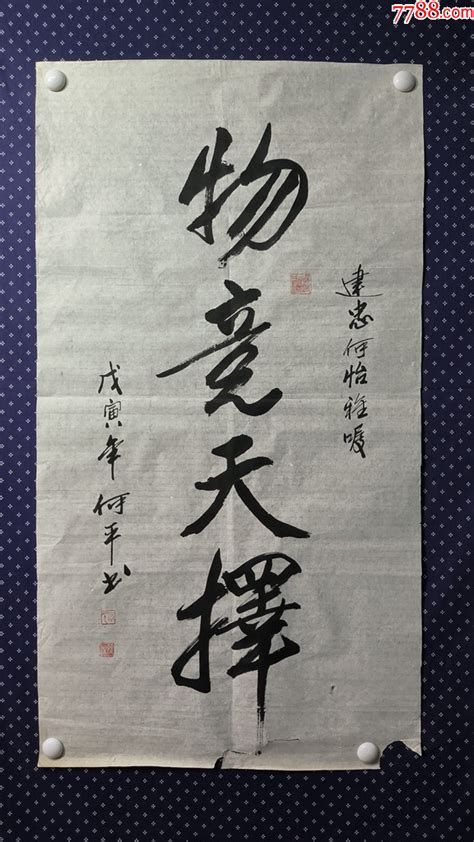 7788.com
建忠何怡雅嘱
物竞天擇
戊寅年何平书